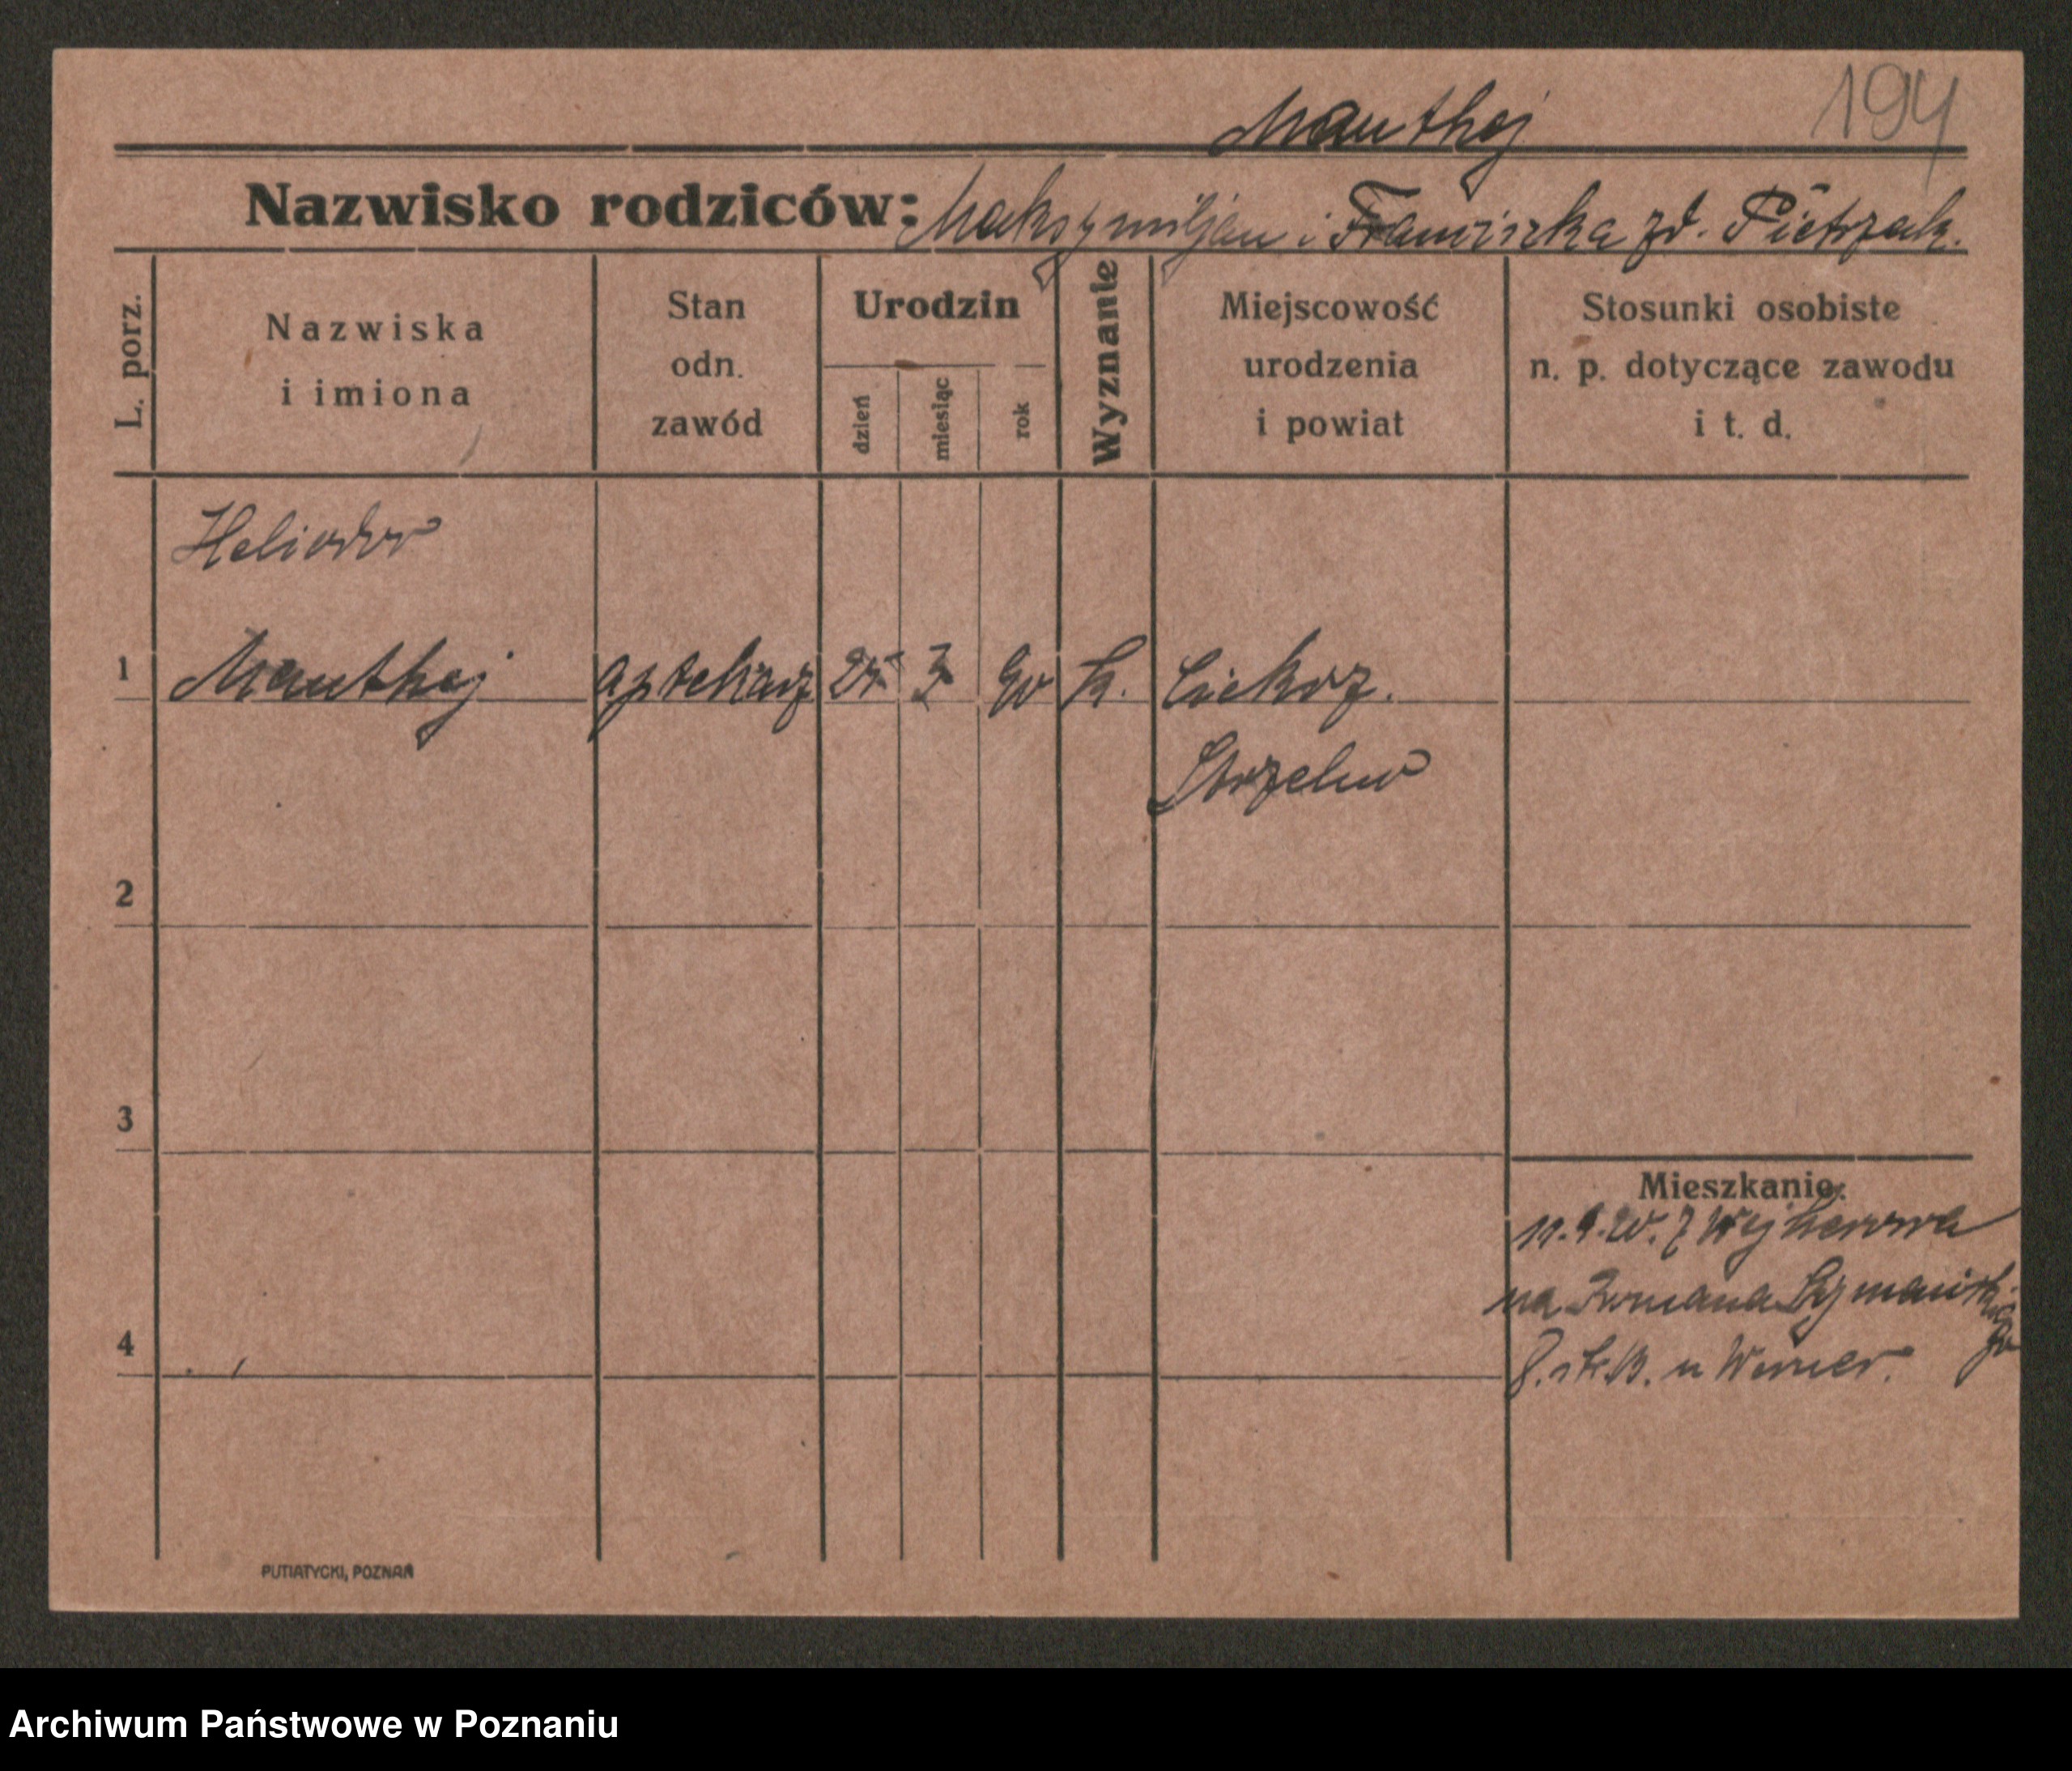 Manthej
194
Nazwisko rodziców: Maksymiljan i Franciszka zd. Pietrzak.
L. porz.
Nazwiska
i imiona
Stan
odn.
zawód
Urodzin
dzień
miesiąc
rok
Wyznanie
Miejscowość
urodzenia
i powiat
Stosunki osobiste
n. p. dotyczące zawodu
i t. d.
Heliodor
1 Manthej aptekarz 25 3 90 k.
Strzelno
2
3
Mieszkanie:
Wejherowa
na Romana Szymańskiego
4
8. u Werner.
PUTIATYCKI, POZNAŃ
Archiwum Państwowe w Poznaniu